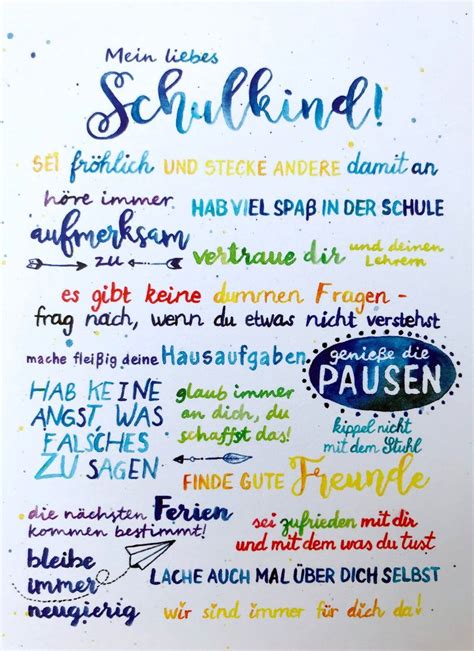 Mein liebes
Schulkind!
SEI fröhlich UND STECKE ANDERE damit an
höre immer
aufmerksam
zu
HAB VIEL SPAß IN DER SCHULE
vertraue dir und deinen
Lehrern
es gibt keine dummen Fragen -
frag nach, wenn du etwas nicht verstehst
mache fleißig deine Hausaufgaben
genieße die
PAUSEN
HAB KEINE
ANGST WAS
FALSCHES
ZU SAGEN
glaub immer
an dich, du
schaffst das!
kippel nicht
mit dem Stuhl
FINDE GUTE Freunde
die nächsten Ferien
kommen bestimmt!
sei zufrieden mit dir
und mit dem was du tust
bleibe
immer
neugierig
LACHE AUCH MAL ÜBER DICH SELBST
wir sind immer für dich da!